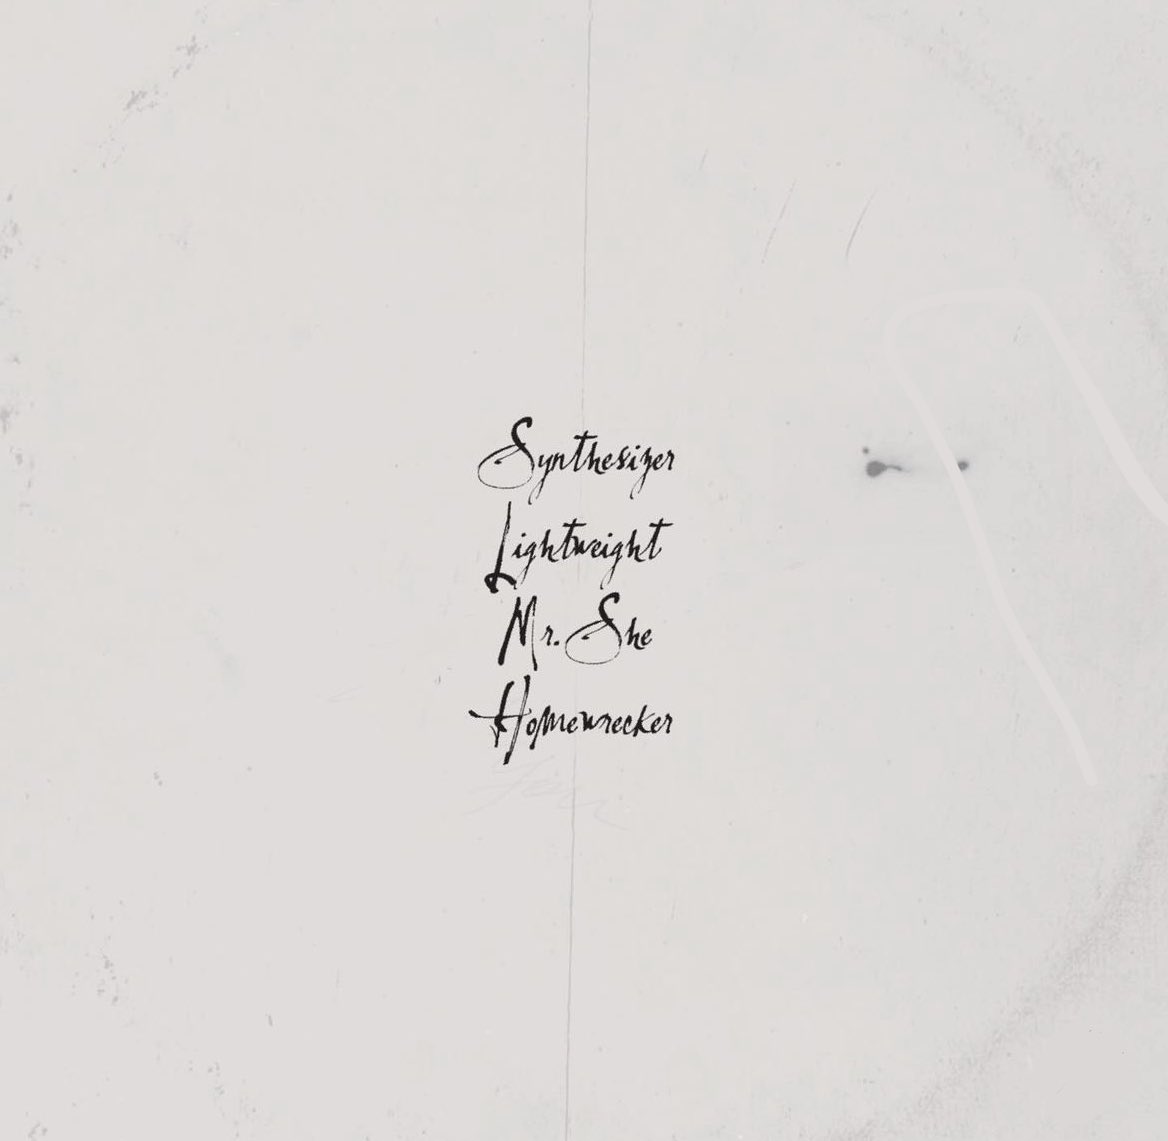 Synthesizer
Lightweight
Mr. She
Homewrecker